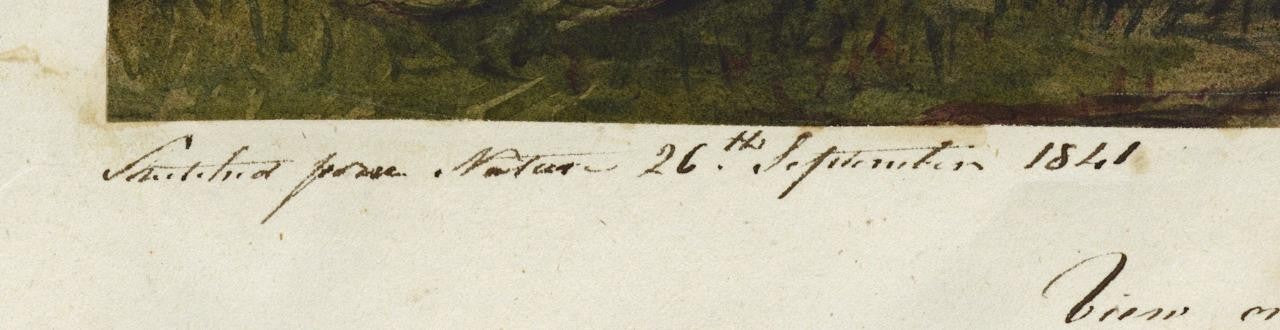 Sketched from Nature 26th September 1841
View